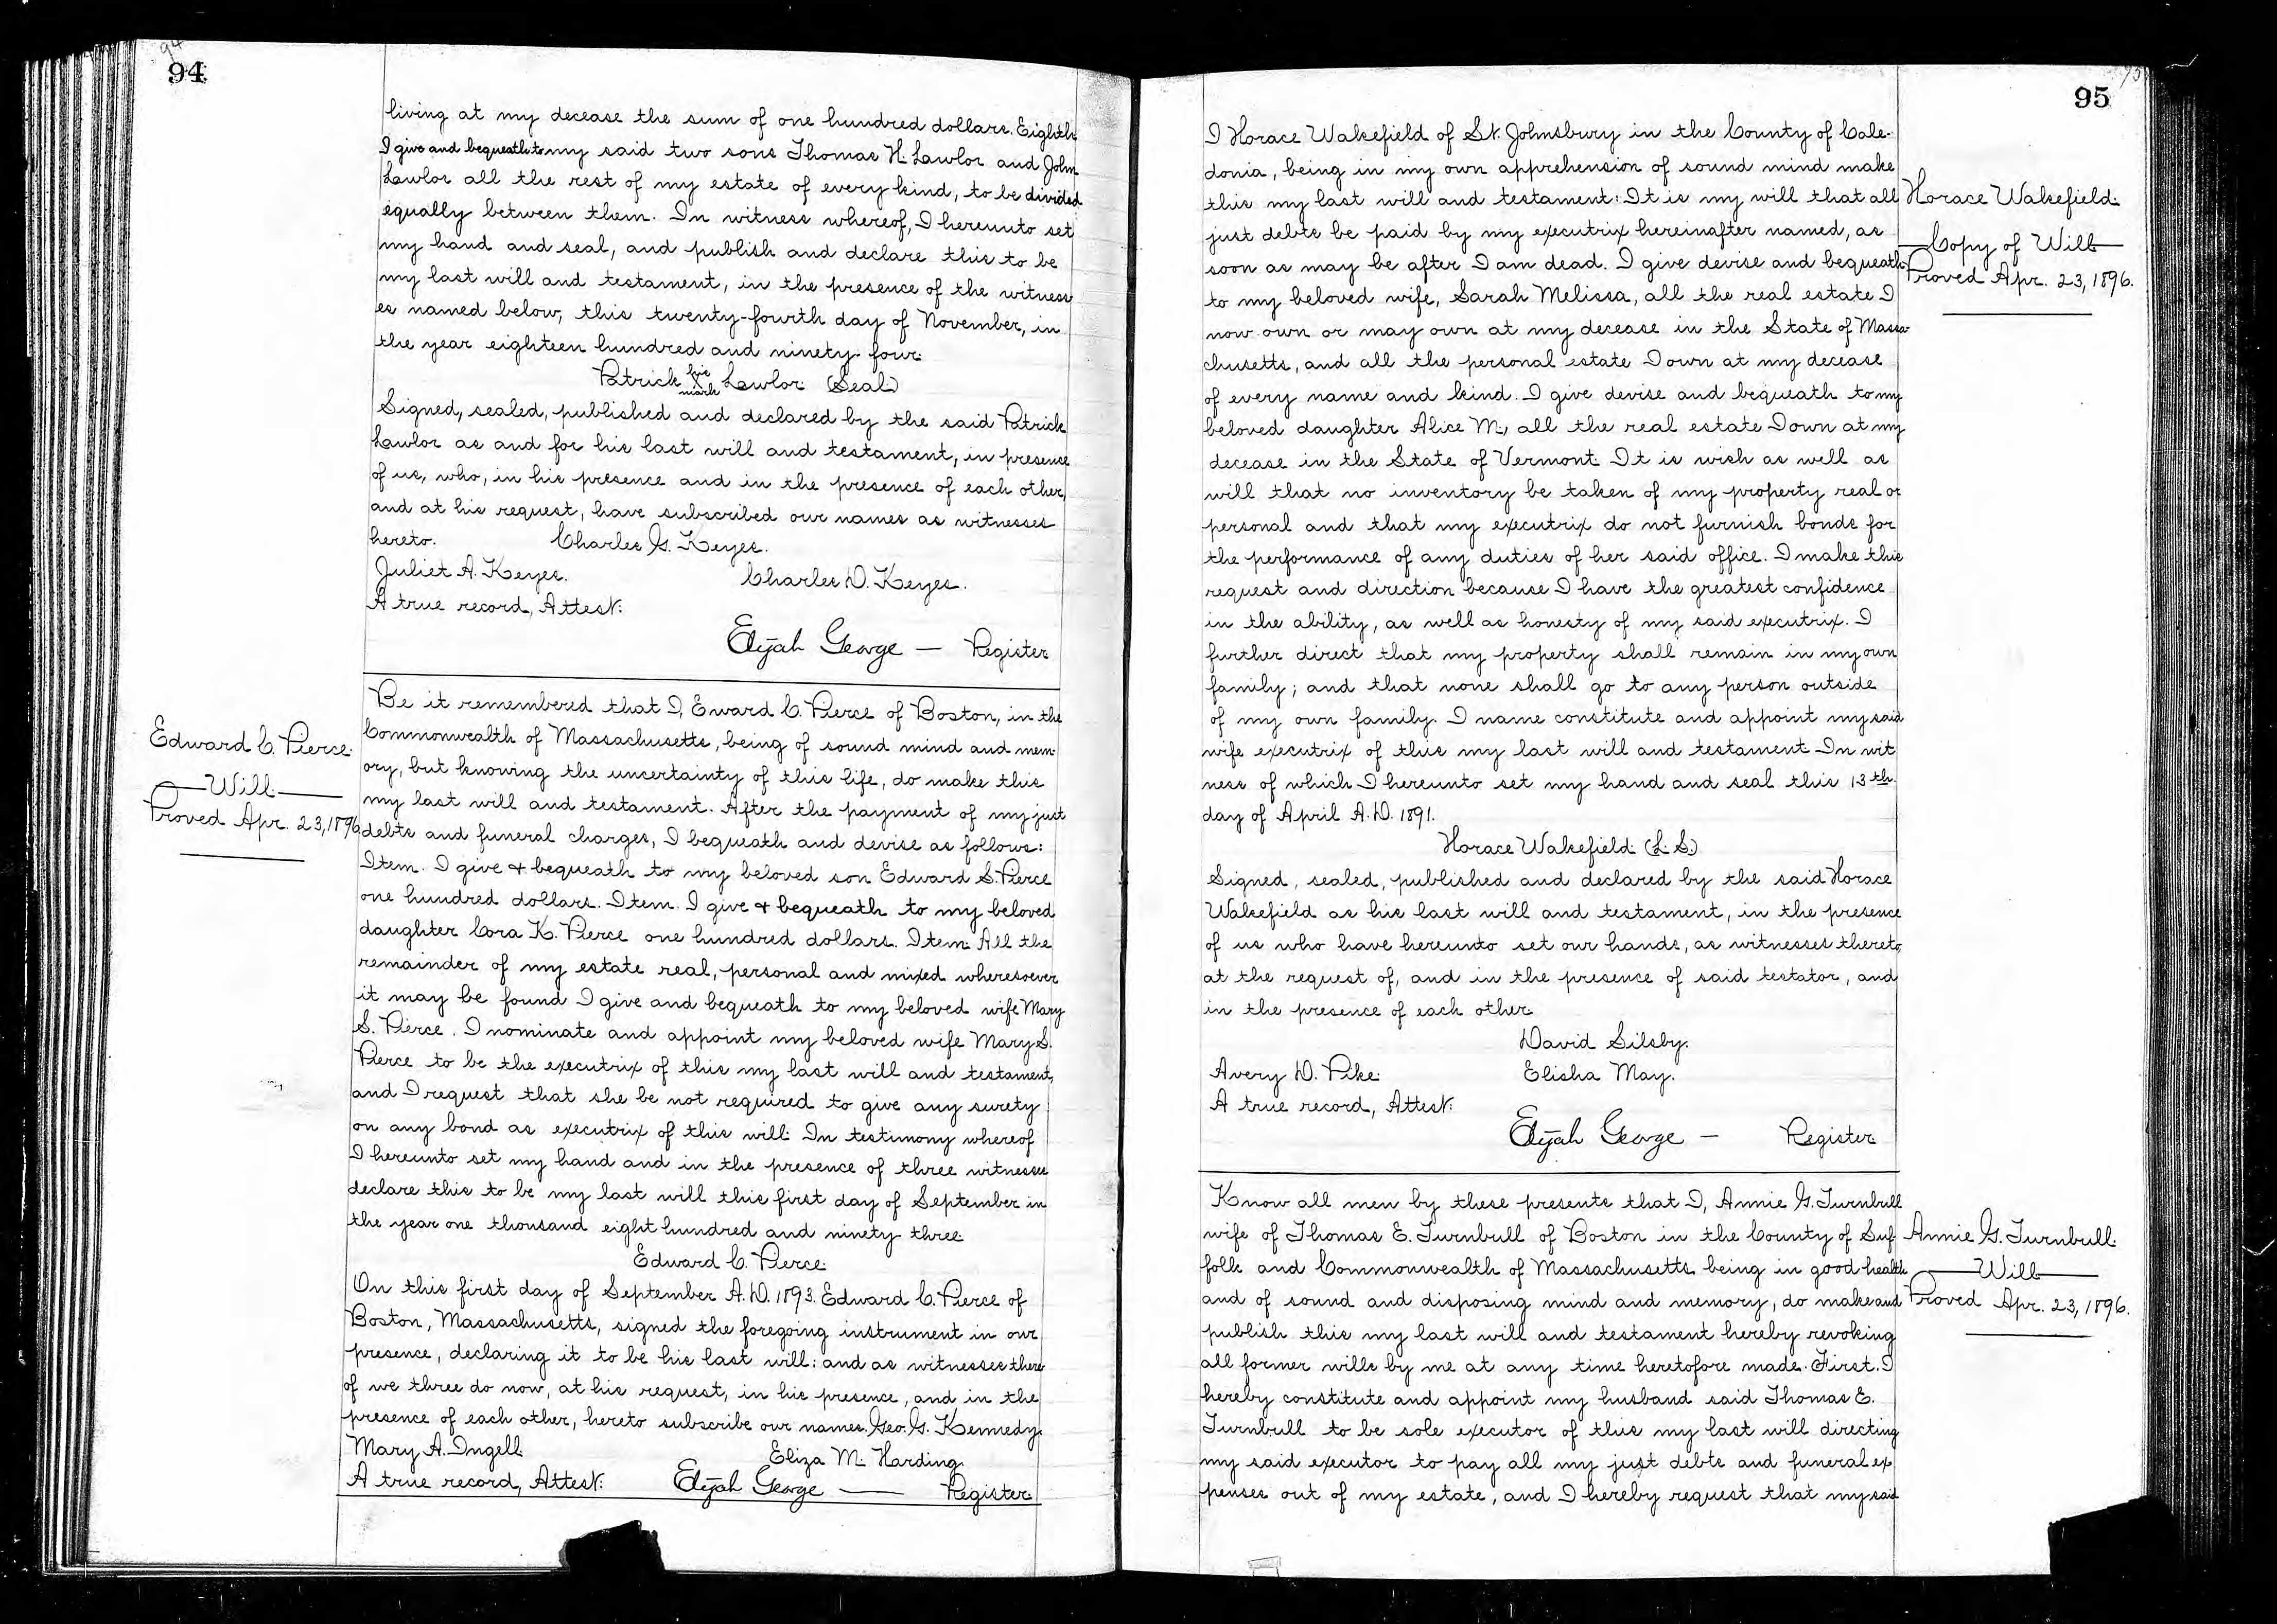 94
94
living at my decease the sum of one hundred dollars. Eighth
I give and bequeath to my said two sons Thomas H. Lawlor and John
Lawlor all the rest of my estate of every kind, to be divided
equally between them. In witness whereof, I hereunto set
my hand and seal, and publish and declare this to be
my last will and testament, in the presence of the witness
es named below, this twenty-fourth day of November, in
the year eighteen hundred and ninety-four.
Patrick his X mark Lawlor (Seal)
Signed, sealed, published and declared by the said Patrick
Lawlor as and for his last will and testament, in presence
of us, who, in his presence and in the presence of each other,
and at his request, have subscribed our names as witnesses
hereto. Charles G. Keyes.
Juliet A. Keyes. Charles D. Keyes.
A true record, Attest:
Elijah George — Register
Edward C. Pierce.
Will
Proved Apr. 23, 1896
Be it remembered that I, Eward C. Pierce of Boston, in the
Commonwealth of Massachusetts, being of sound mind and mem-
ory, but knowing the uncertainty of this life, do make this
my last will and testament. After the payment of my just
debts and funeral charges, I bequeath and devise as follows:
Item. I give & bequeath to my beloved son Edward S. Pierce
one hundred dollars. Item. I give & bequeath to my beloved
daughter Cora K. Pierce one hundred dollars. Item. All the
remainder of my estate real, personal and mixed wheresoever
it may be found I give and bequeath to my beloved wife Mary
S. Pierce. I nominate and appoint my beloved wife Mary S.
Pierce to be the executrix of this my last will and testament,
and I request that she be not required to give any surety
on any bond as executrix of this will. In testimony whereof
I hereunto set my hand and in the presence of three witnesses
declare this to be my last will this first day of September in
the year one thousand eight hundred and ninety three.
Edward C. Pierce.
On this first day of September A.D. 1893. Edward C. Pierce of
Boston, Massachusetts, signed the foregoing instrument in our
presence, declaring it to be his last will: and as witnesses there
of we three do now, at his request, in his presence, and in the
presence of each other, hereto subscribe our names. Geo. G. Kennedy.
Mary A. Ingell. Eliza M. Harding.
A true record, Attest: Elijah George — Register
95
95
I Horace Wakefield of St. Johnsbury in the County of Cale-
donia, being in my own apprehension of sound mind make
this my last will and testament: It is my will that all
just debts be paid by my executrix hereinafter named, as
soon as may be after I am dead. I give devise and bequeath
to my beloved wife, Sarah Melissa, all the real estate I
now own or may own at my decease in the State of Massa-
chusetts, and all the personal estate I own at my decease
of every name and kind. I give devise and bequeath to my
beloved daughter Alice M., all the real estate I own at my
decease in the State of Vermont. It is wish as well as
will that no inventory be taken of my property real or
personal and that my executrix do not furnish bonds for
the performance of any duties of her said office. I make this
request and direction because I have the greatest confidence
in the ability, as well as honesty of my said executrix. I
further direct that my property shall remain in my own
family; and that none shall go to any person outside
of my own family. I name constitute and appoint my said
wife executrix of this my last will and testament In wit
ness of which I hereunto set my hand and seal this 13th.
day of April A.D. 1891.
Horace Wakefield. (L.S.)
Signed, sealed, published and declared by the said Horace
Wakefield as his last will and testament, in the presence
of us who have hereunto set our hands, as witnesses thereto,
at the request of, and in the presence of said testator, and
in the presence of each other.
David Silsby.
Avery D. Pike. Elisha May.
A true record, Attest:
Elijah George — Register
Horace Wakefield.
Copy of Will
Proved Apr. 23, 1896.
Know all men by these presents that I, Annie G. Turnbull
wife of Thomas E. Turnbull of Boston in the County of Suf
folk and Commonwealth of Massachusetts being in good health
and of sound and disposing mind and memory, do make and
publish this my last will and testament hereby revoking
all former wills by me at any time heretofore made. First. I
hereby constitute and appoint my husband said Thomas E.
Turnbull to be sole executor of this my last will directing
my said executor to pay all my just debts and funeral ex
penses out of my estate, and I hereby request that my said
Annie G. Turnbull.
Will
Proved Apr. 23, 1896.